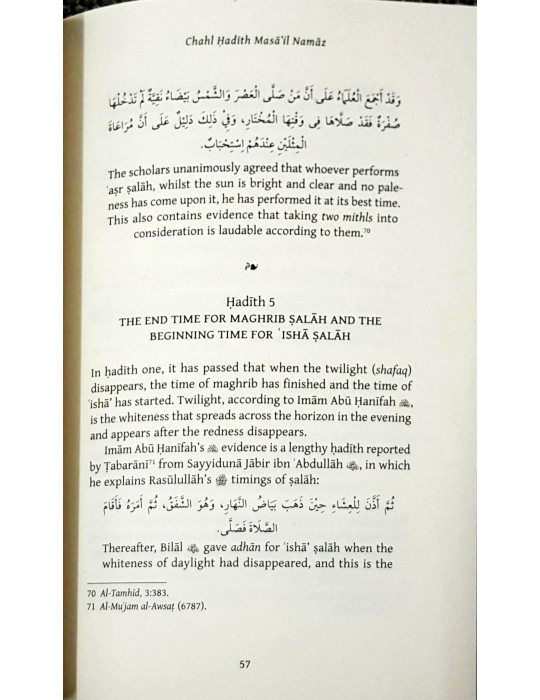 Chahl Ḥadīth Masā'il Namāz
وَقَدْ أَجْمَعَ الْعُلَمَاءُ عَلَى أَنَّ مَنْ صَلَّى الْعَصْرَ وَالشَّمْسُ بَيْضَاءُ نَقِيَّةٌ لَمْ تَدْخُلْهَا
صُفْرَةٌ فَقَدْ صَلَّاهَا فِى وَقْتِهَا الْمُخْتَارِ، وَفِي ذَلِكَ دَلِيْلٌ عَلَى أَنَّ مُرَاعَاةَ
الْمِثْلَيْنِ عِنْدَهُمْ اِسْتِحْبَابٌ.
The scholars unanimously agreed that whoever performs
ʿaṣr ṣalāh, whilst the sun is bright and clear and no pale-
ness has come upon it, he has performed it at its best time.
This also contains evidence that taking two mithls into
consideration is laudable according to them.⁷⁰
Ḥadīth 5
THE END TIME FOR MAGHRIB ṢALĀH AND THE
BEGINNING TIME FOR ʿISHĀ ṢALĀH
In ḥadīth one, it has passed that when the twilight (shafaq)
disappears, the time of maghrib has finished and the time of
ʿishā' has started. Twilight, according to Imām Abū Ḥanīfah,
is the whiteness that spreads across the horizon in the evening
and appears after the redness disappears.
Imām Abū Ḥanīfah's evidence is a lengthy ḥadīth reported
by Ṭabarānī⁷¹ from Sayyidunā Jābir ibn ʿAbdullāh, in which
he explains Rasūlullāh's ﷺ timings of ṣalāh:
ثُمَّ أَذَّنَ لِلْعِشَاءِ حِيْنَ ذَهَبَ بَيَاضُ النَّهَارِ، وَهُوَ الشَّفَقُ، ثُمَّ أَمَرَهُ فَأَقَامَ
الصَّلَاةَ فَصَلَّى.
Thereafter, Bilāl gave adhān for ʿishā' ṣalāh when the
whiteness of daylight had disappeared, and this is the
70 Al-Tamhīd, 3:383.
71 Al-Muʿjam al-Awsaṭ (6787).
57